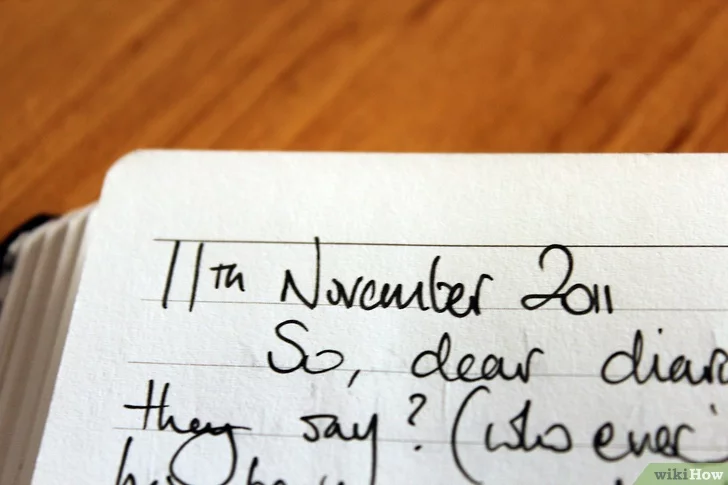 11th November 2011
So, dear
they say? (who ever
wikiHow